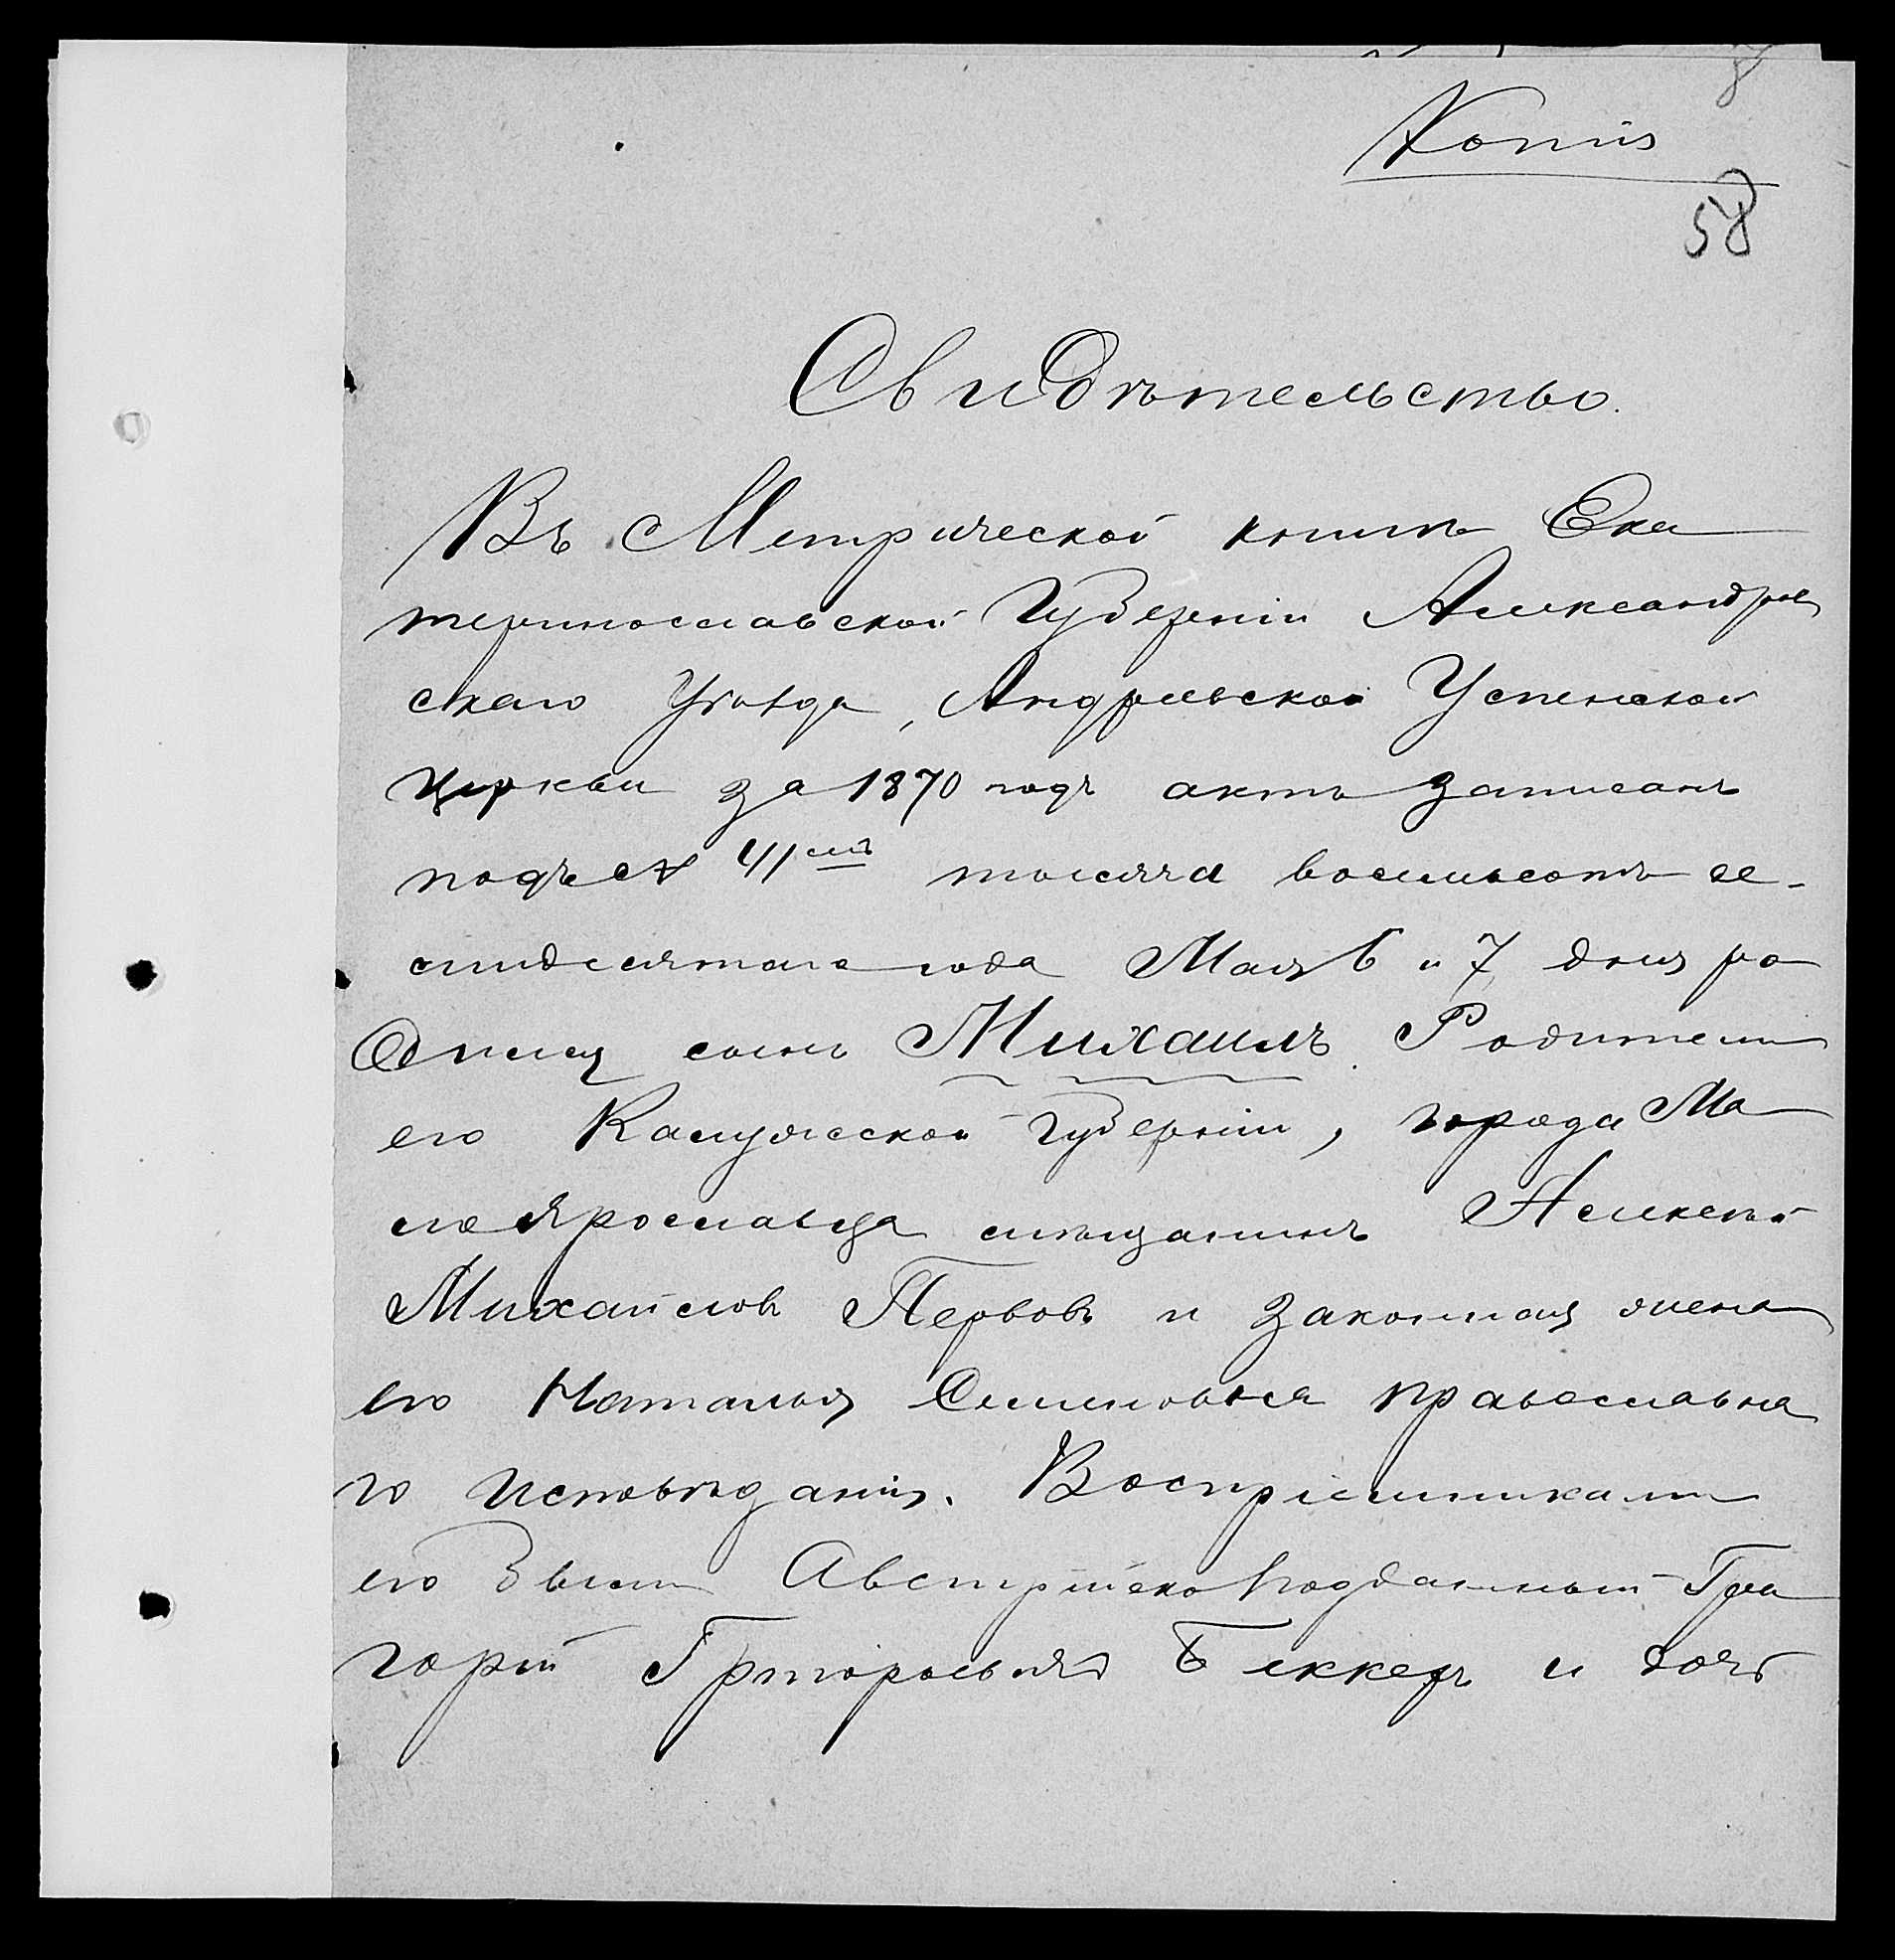 8
Копія
58
Свидѣтельство.
Въ Метрической книгѣ Ека
теринославской Губерніи Александров
скаго Уѣзда, Андреевской Успенской
церкви за 1870 годъ актъ записанъ
подъ № 41мъ тысяча восемьсотъ се-
мидесятаго года Мая 6 и 7 дня ро
дился сынъ Михаилъ. Родители
его Калужской губерніи, города Ма
лоярославца мѣщанинъ Алексѣй
Михайловъ Первовъ и законная жена
его Наталья Семеновна православна
го исповѣданія. Воспріемниками
его были Австрійско подданный Гри
горій Григорьевичъ Беккеръ и дочь